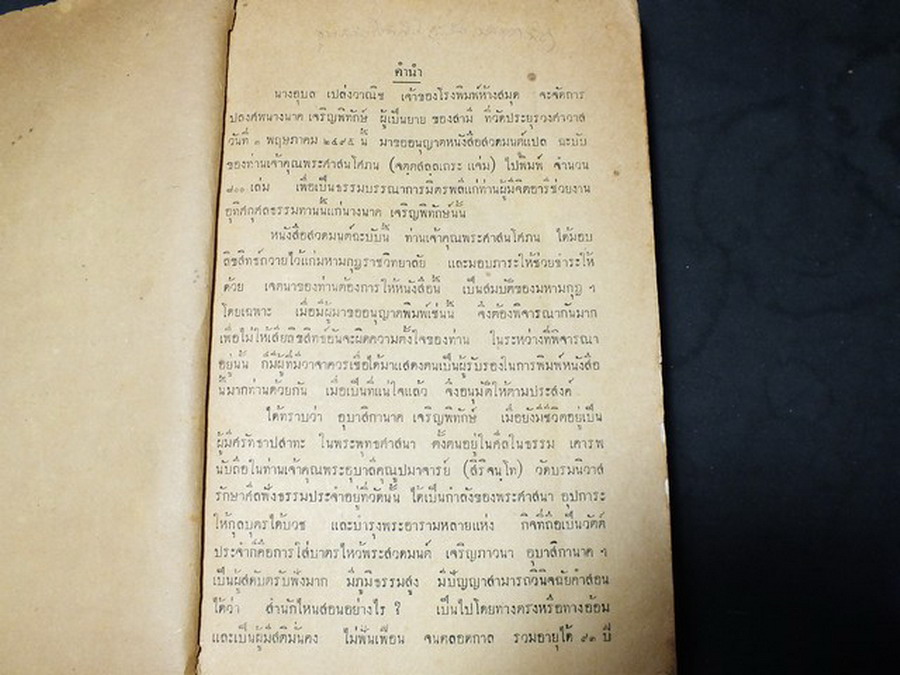 คำนำ
นางอุบล เปล่งวาณิช เจ้าของโรงพิมพ์ห้างสมุด จะจัดการ
ปลงศพนางนาค เจริญพิทักษ์ ผู้เป็นยาย ของสามี ที่วัดประยุรวงศาวาส
วันที่ ๓ พฤษภาคม ๒๔๙๕ นี้ มาขออนุญาตหนังสือสวดมนต์แปล ฉะบับ
ของท่านเจ้าคุณพระศาสนโศภน (จตฺตสลฺลเถระ แจ่ม) ไปพิมพ์ จำนวน
๘๐๐ เล่ม เพื่อเป็นธรรมบรรณาการมิตรพลีแก่ท่านผู้มีจิตอารีช่วยงาน
อุทิศกุศลธรรมทานนี้แก่นางนาค เจริญพิทักษ์นั้น
หนังสือสวดมนต์ฉะบับนี้ ท่านเจ้าคุณพระศาสนโศภน ได้มอบ
ลิขสิทธ์ถวายไว้แก่มหามกุฏราชวิทยาลัย และมอบภาระให้ช่วยชำระให้
ด้วย เจตนาของท่านต้องการให้หนังสือนี้ เป็นสมบัติของมหามกุฏ ฯ
โดยเฉพาะ เมื่อมีผู้มาขออนุญาตพิมพ์เช่นนี้ จึงต้องพิจารณากันมาก
เพื่อไม่ให้เสียลิขสิทธ์อันจะผิดความตั้งใจของท่าน ในระหว่างที่พิจารณา
อยู่นั้น ก็มีผู้ที่มีวาจาควรเชื่อได้มาแสดงตนเป็นผู้รับรองในการพิมพ์หนังสือ
นี้มากท่านด้วยกัน เมื่อเป็นที่แน่ใจแล้ว จึงอนุมัติให้ตามประสงค์
ได้ทราบว่า อุบาสิกานาค เจริญพิทักษ์ เมื่อยังมีชีวิตอยู่เป็น
ผู้มีศรัทธาปสาทะ ในพระพุทธศาสนา ตั้งตนอยู่ในศีลในธรรม เคารพ
นับถือในท่านเจ้าคุณพระอุบาลีคุณูปมาจารย์ (สิริจนฺโท) วัดบรมนิวาส
รักษาศีลฟังธรรมประจำอยู่ที่วัดนั้น ได้เป็นกำลังของพระศาสนา อุปการะ
ให้กุลบุตรได้บวช และบำรุงพระอารามหลายแห่ง กิจที่ถือเป็นวัตต์
ประจำก็คือการใส่บาตรไหว้พระสวดมนต์ เจริญภาวนา อุบาสิกานาค ฯ
เป็นผู้สดับตรับฟังมาก มีภูมิธรรมสูง มีปัญญาสามารถวินิจฉัยคำสอน
ได้ว่า สำนักไหนสอนอย่างไร ? เป็นไปโดยทางตรงหรือทางอ้อม
และเป็นผู้มีสติมั่นคง ไม่ฟั่นเฟือน จนตลอดกาล รวมอายุได้ ๙๓ ปี